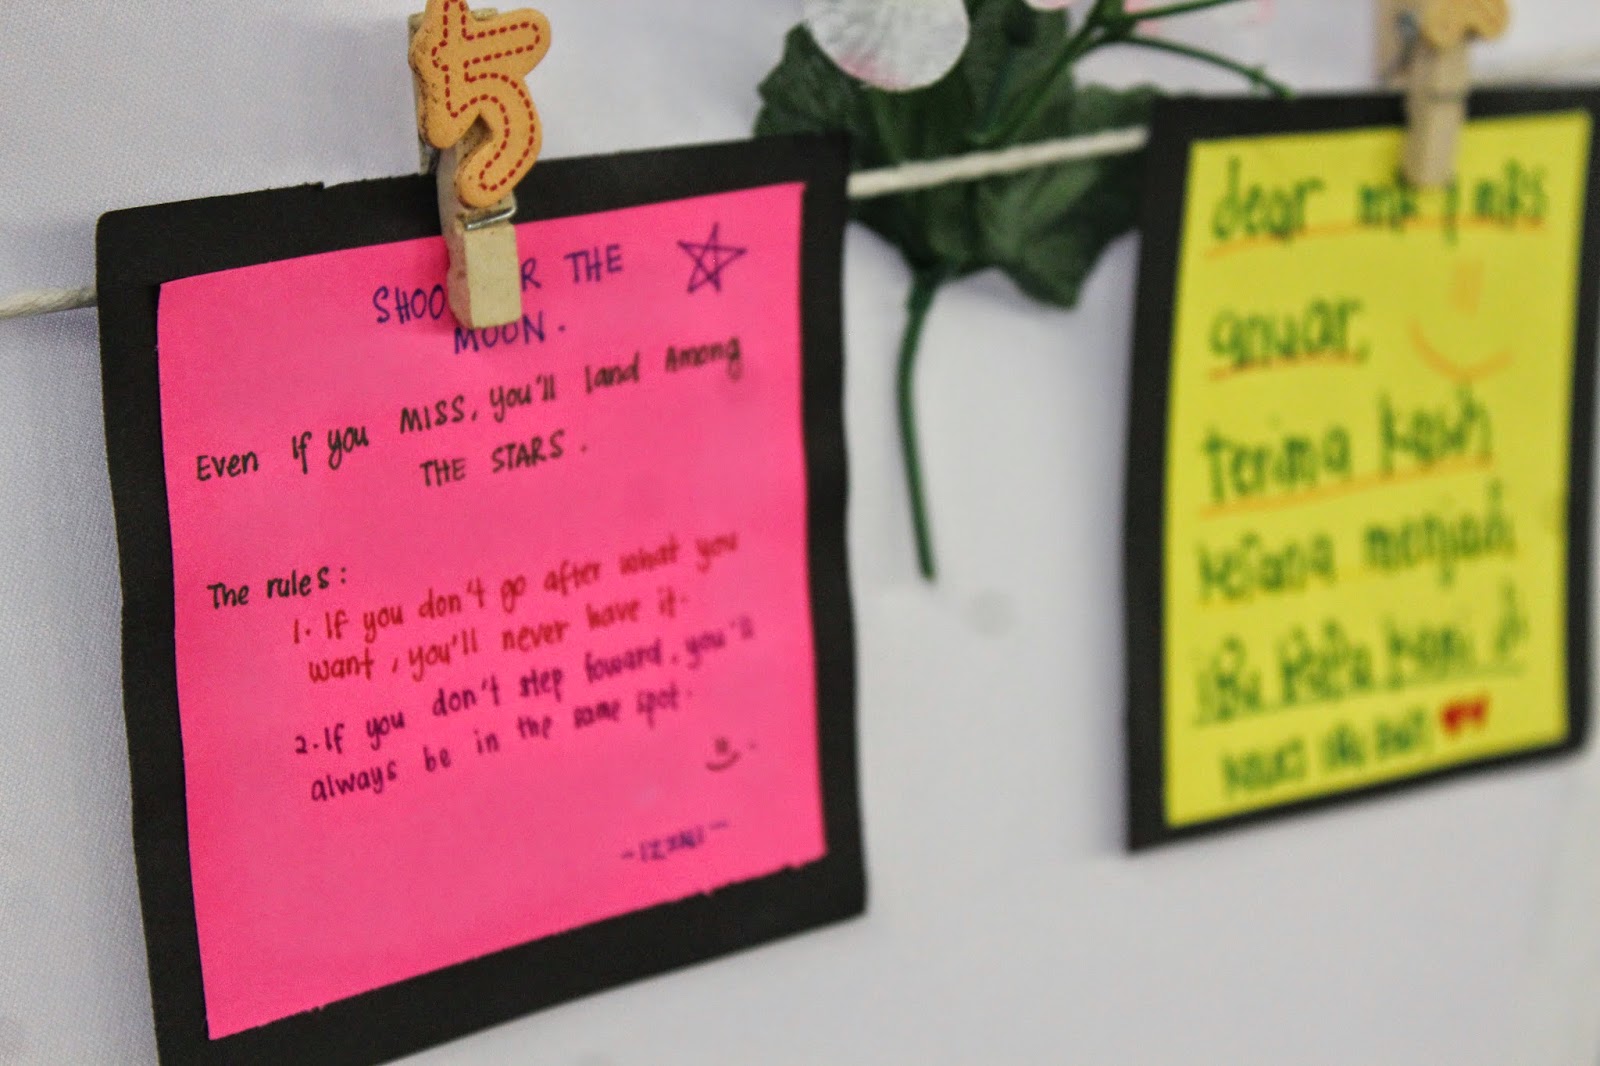 5
SHOO R THE
MOON.
Even If you MISS, you'll land Among
THE STARS.
The rules:
1. If you don't go after what you
want, you'll never have it.
2. If you don't step foward, you'll
always be in the same spot.
dear
terima kasih
kerana menjadi
ibu bapa kami di